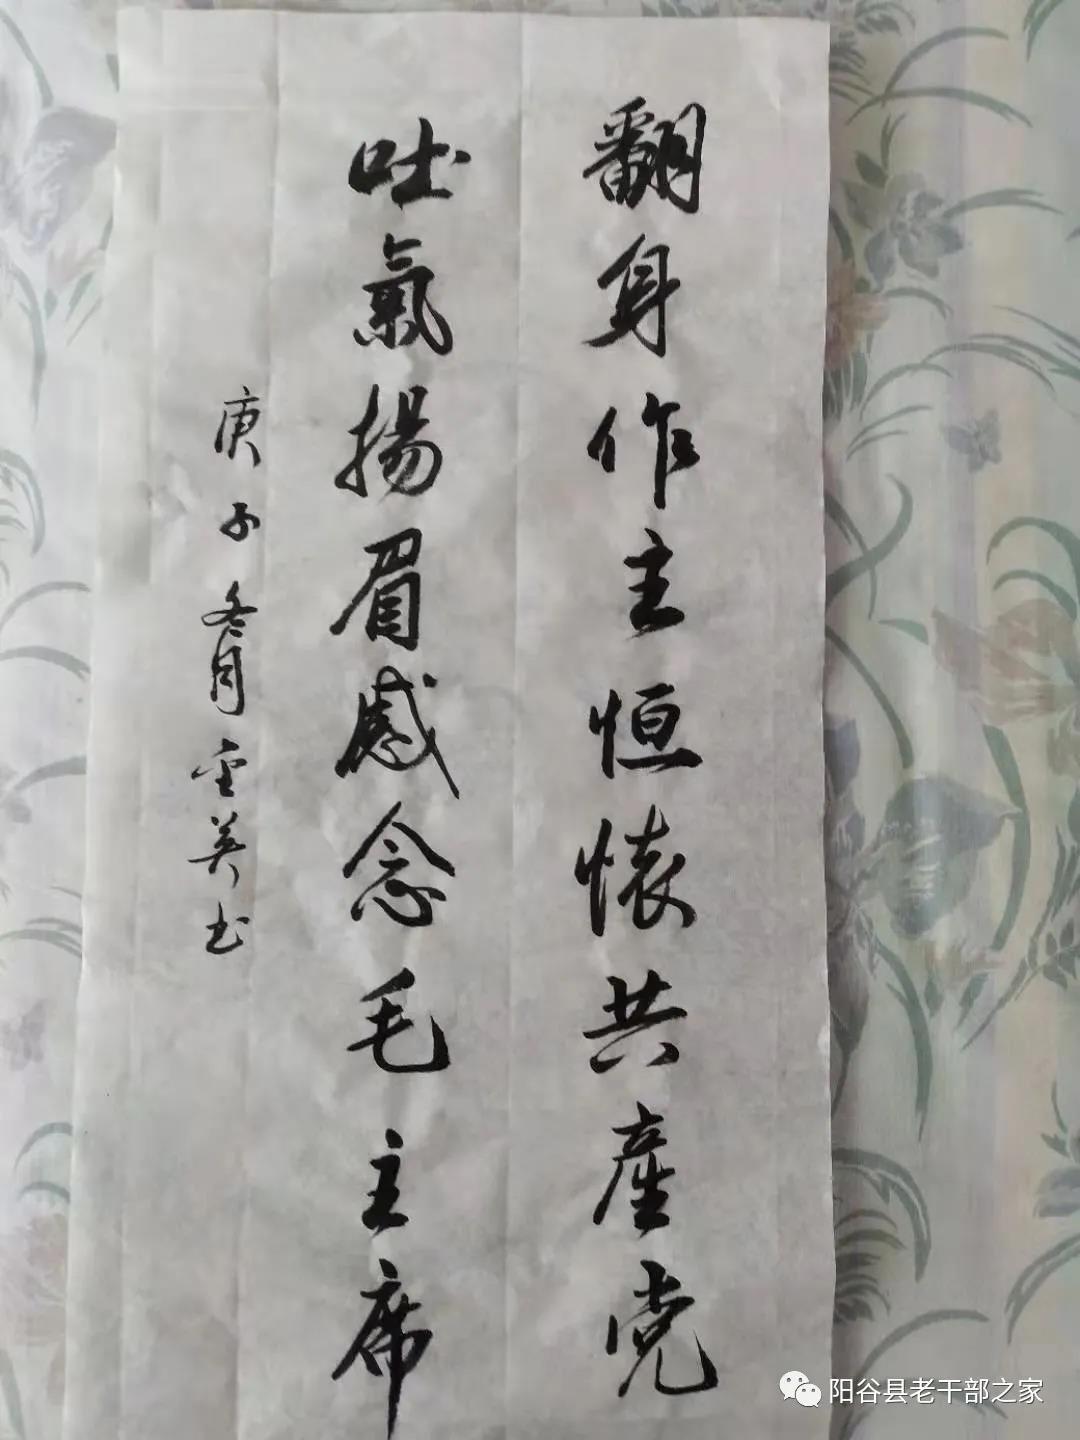 翻身作主恒懷共產党
吐氣揚眉感念毛主席
庚子冬月金英书
阳谷县老干部之家